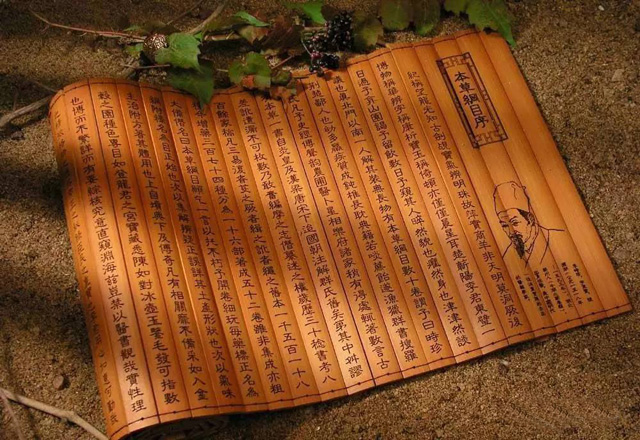 本草綱目序
紀稱望龍光知古劍覘寶氣辨明珠故萍實商羊非天明莫洞厥後
博物稱華辨字稱康析寶玉稱倚頓亦僅僅晨星耳楚蘄陽李君東璧一
日過予弇山園謁予留飲數日予窺其人睟然貌也癯然身也津津然談
議也真北斗以南一人解其裝無長物有本草綱目數十卷謂予曰時珍
荊楚鄙人也幼多羸疾質成鈍椎長耽典籍若啖蔗飴遂漁獵群書搜羅
百氏凡子史經傳聲韵農圃醫卜星相樂府諸家稍有得處輒著數言古
有本草一書自炎皇及漢梁唐宋下迨國朝注解群氏舊矣第其中舛謬
差訛遺漏不可枚數乃敢奮編摩之志僭纂述之權歲歷三十稔書考八
百餘家稿凡三易復者芟之闕者緝之訛者繩之舊本一千五百一十八
種今增藥三百七十四種分為一十六部著成五十二卷雖非集成亦粗
大備僭名曰本草綱目願乞一言以托不朽予開卷細玩每藥標正名為
綱附釋名為目正始也次以集解辨疑正誤詳其土產形狀也次以氣味
主治附方著其體用也上自墳典下及傳奇凡有相關靡不備采如入金
谷之園種色奪目如登龍君之宮寶藏悉陳如對冰壺玉鑒毛髮可指數
也博而不繁詳而有要綜核究竟直窺淵海茲豈禁以醫書觀哉實性理